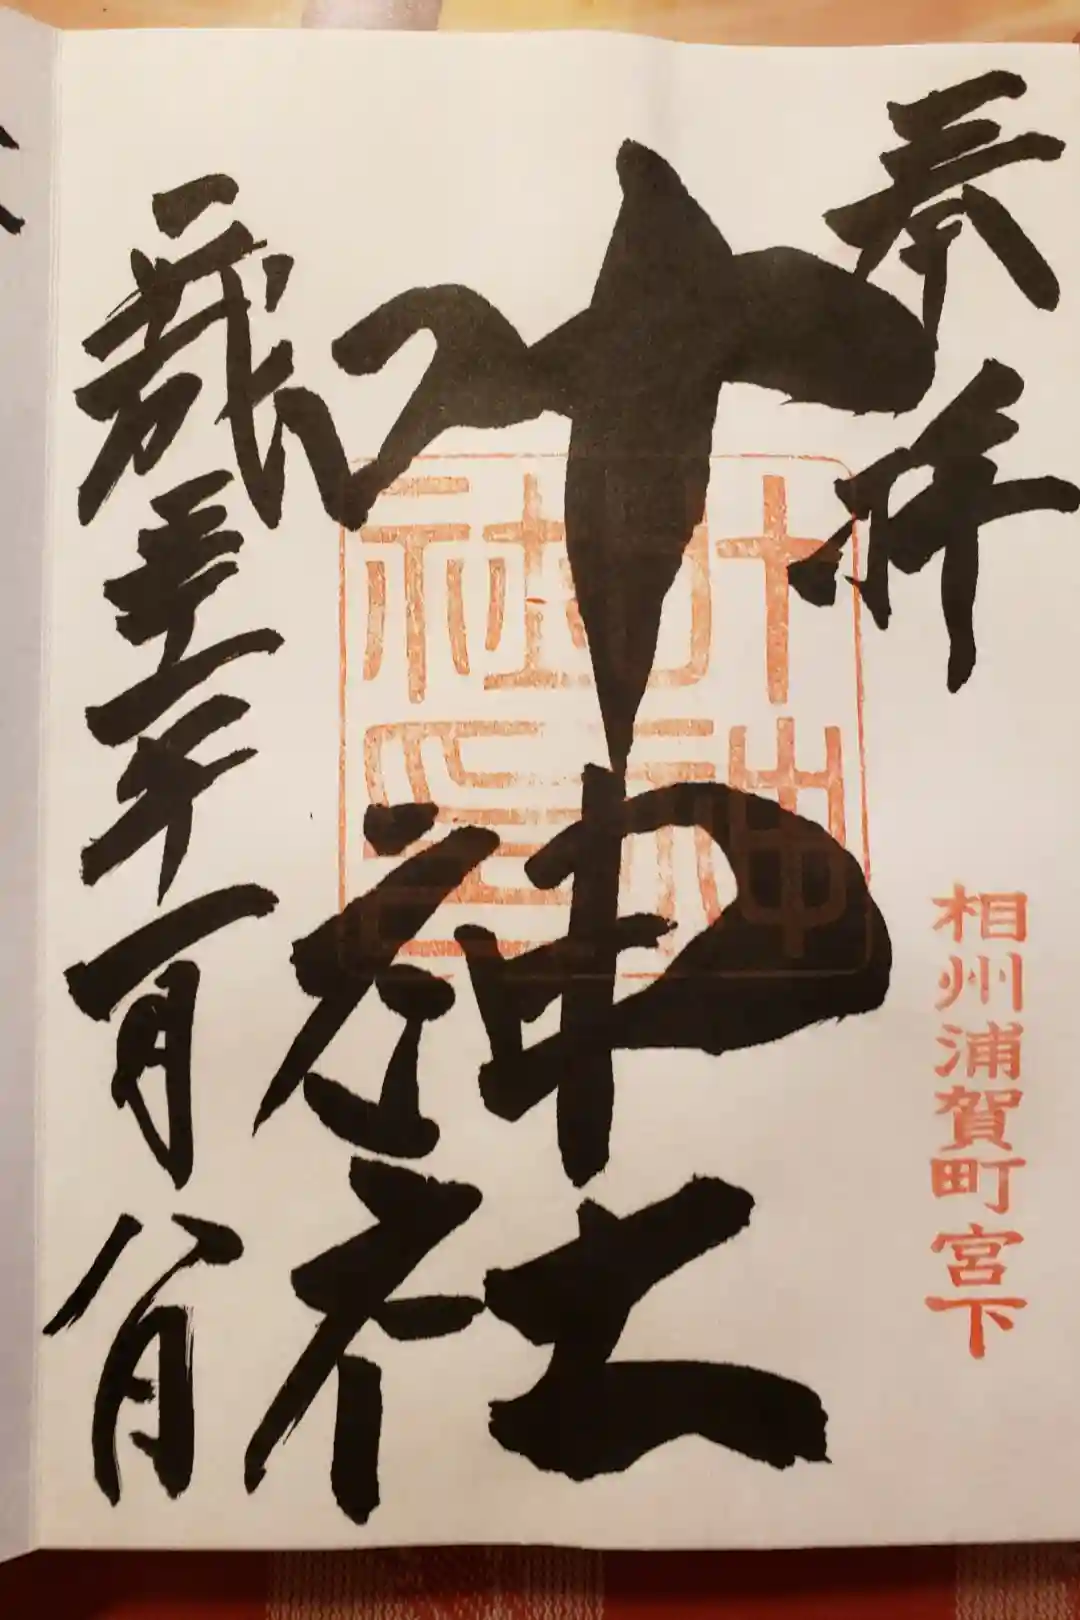 奉拝
相州浦賀町宮下
叶神社
叶神
社印
年一月八日